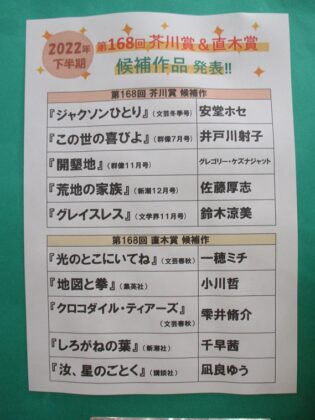 2022年
下半期
第168回 芥川賞&直木賞
候補作品 発表!!
第168回 芥川賞 候補作
『ジャクソンひとり』(文芸冬季号) 安堂ホセ
『この世の喜びよ』(群像7月号) 井戸川射子
『開墾地』(群像11月号) グレゴリー・ケズナジャット
『荒地の家族』(新潮12月号) 佐藤厚志
『グレイスレス』(文学界11月号) 鈴木涼美
第168回 直木賞 候補作
『光のとこにいてね』(文芸春秋) 一穂ミチ
『地図と拳』(集英社) 小川哲
『クロコダイル・ティアーズ』
(文芸春秋) 雫井脩介
『しろがねの葉』(新潮社) 千早茜
『汝、星のごとく』(講談社) 凪良ゆう